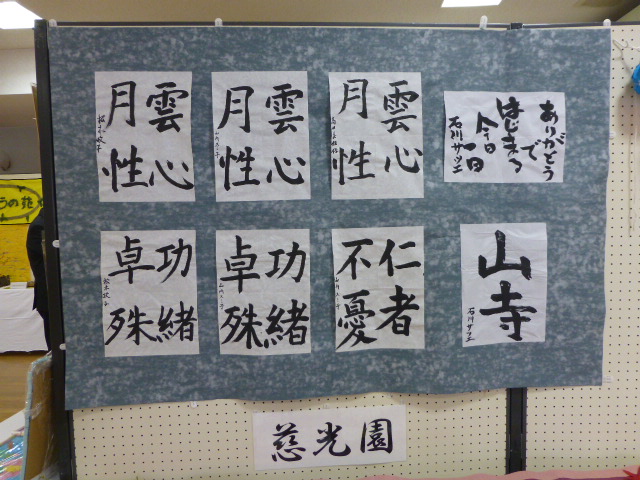 ありがとう
で
はじまる
今日一日
石川サツエ
雲心
月性
雲心
月性
雲心
月性
山寺
石川サツエ
仁者
不憂
功緒
卓殊
功緒
卓殊
慈光園
うの苑